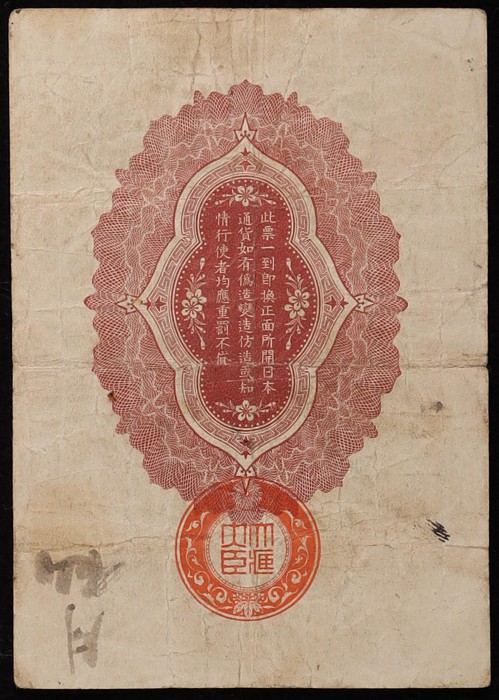 此票一到即換正面所開日本
通貨如有偽造變造仿造並知
情行使者均應重罰不貸
大藏
大臣